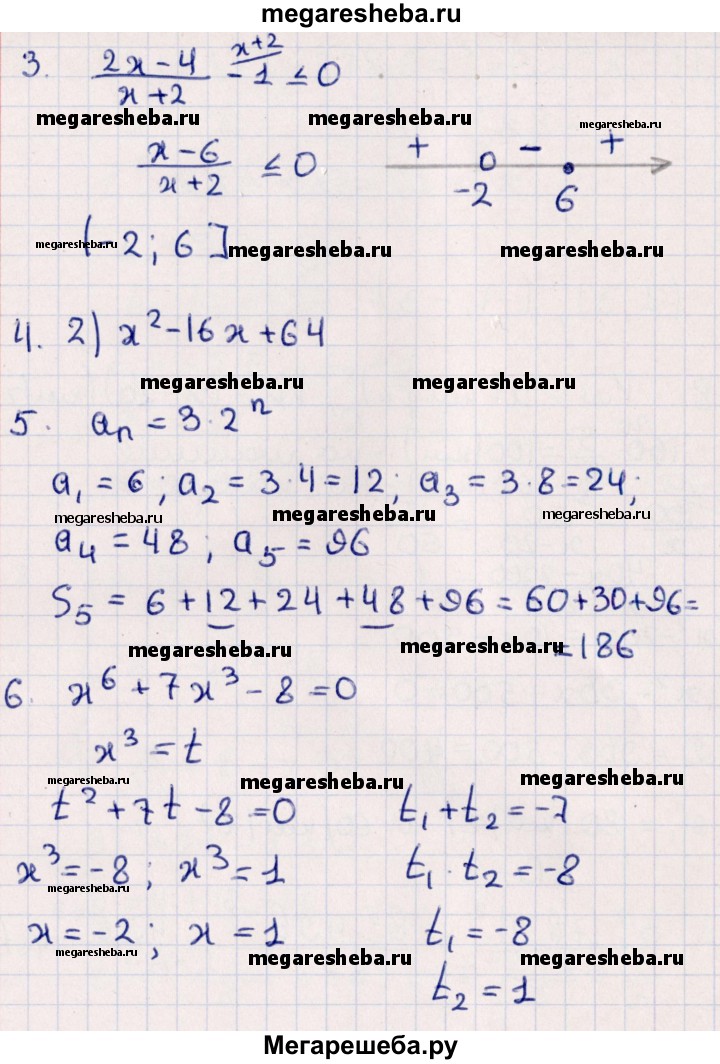 megaresheba.ru
3. (2x-4)/(x+2) - 1 ≤ 0 x+2
megaresheba.ru megaresheba.ru megaresheba.ru
(x-6)/(x+2) ≤ 0 + - +
-2 6
megaresheba.ru -2; 6] megaresheba.ru megaresheba.ru
4. 2) x²-16x+64
megaresheba.ru megaresheba.ru
5. aₙ = 3·2ⁿ
a₁ = 6; a₂ = 3·4=12; a₃ = 3·8=24;
megaresheba.ru megaresheba.ru megaresheba.ru
a₄ = 48; a₅ = 96
S₅ = 6+12+24+48+96=60+30+96=
megaresheba.ru megaresheba.ru =186
6. x⁶+7x³-8=0
x³=t
megaresheba.ru megaresheba.ru megaresheba.ru
t²+7t-8=0 t₁+t₂=-7
x³=-8; x³=1 t₁·t₂=-8
megaresheba.ru megaresheba.ru megaresheba.ru
x=-2; x=1 t₁=-8
megaresheba.ru megaresheba.ru megaresheba.ru
t₂=1
Мегарешеба.ру